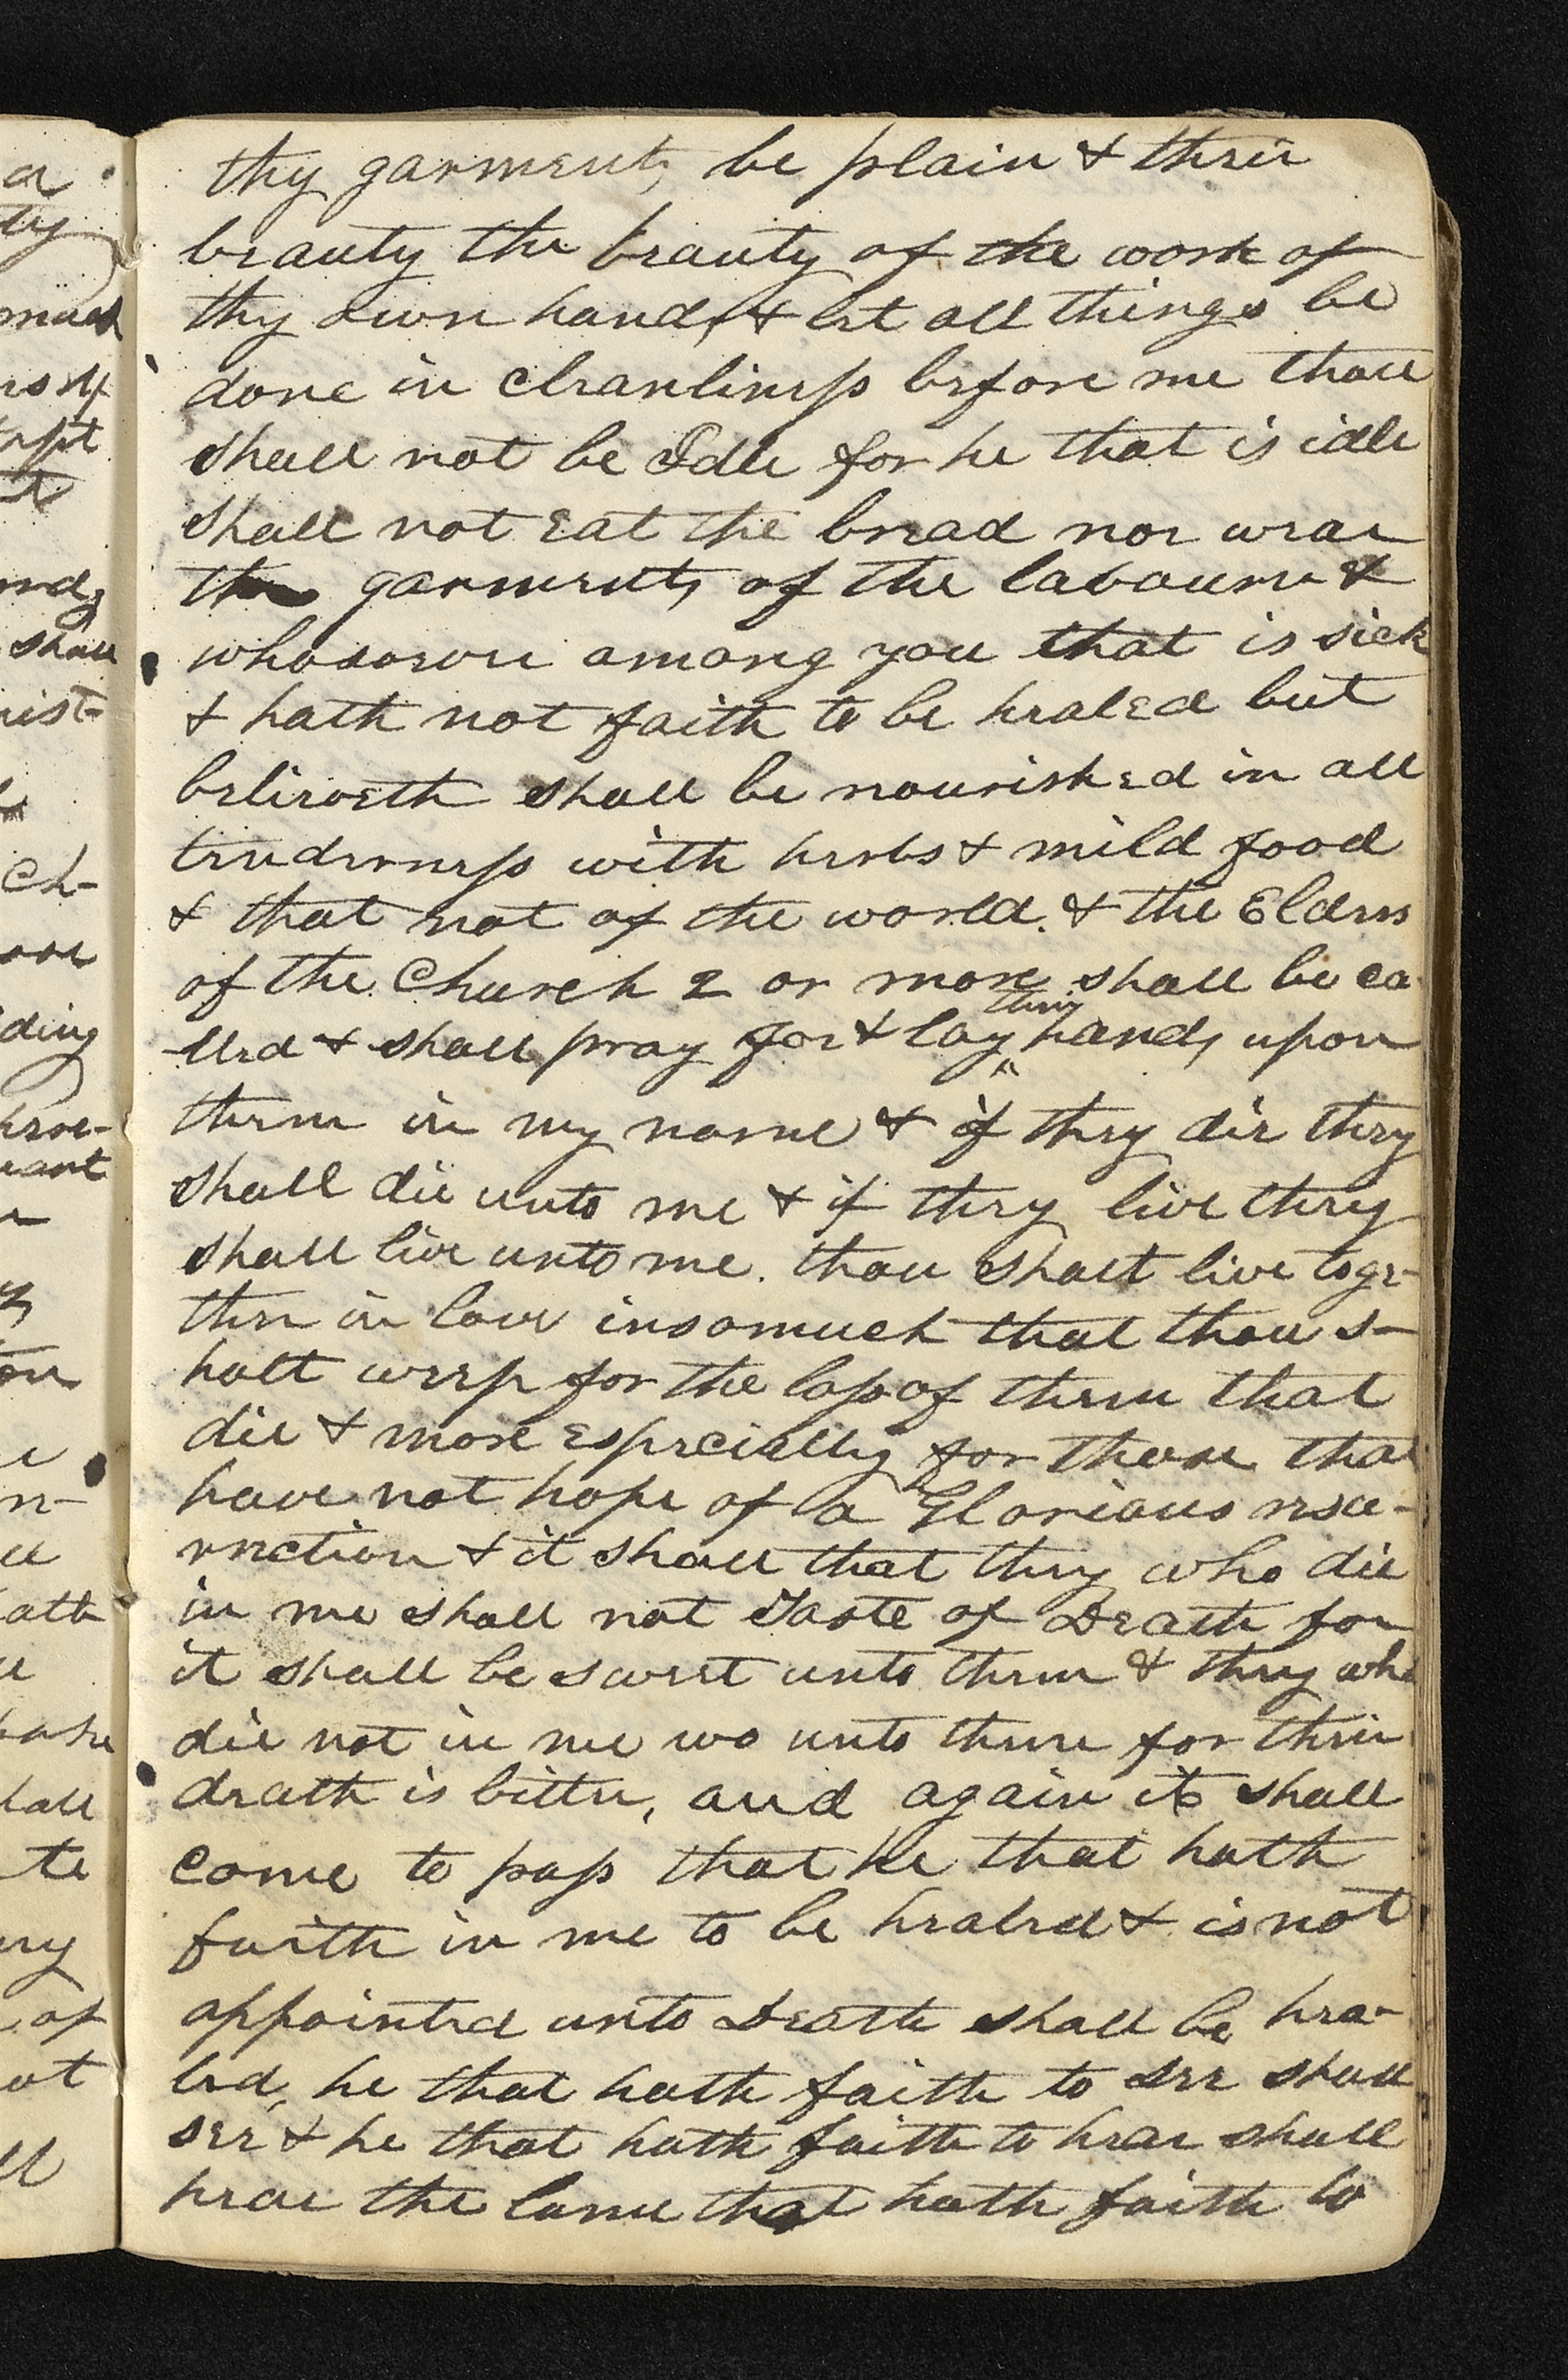 thy garments be plain & their
beauty the beauty of the work of
thy own hands & let all things be
done in cleanliness before me thou
shall not be Idle for he that is idle
shall not eat the bread nor wear
the garments of the labourer &
whosoever among you that is sick
& hath not faith to be healed but
believeth shall be nourished in all
tenderness with herbs & mild food
& that not of the world. & the Elders
of the Church 2 or more shall be ca
lled & shall pray for & lay their hands upon
them in my name & if they die they
shall die unto me & if they live they
shall live unto me. thou shalt live toge-
ther in love insomuch that thou s-
halt weep for the loss of them that
die & more especially for those that
have not hope of a Glorious resu-
rrection & it shall that they who die
in me shall not Taste of Death for
it shall be sweet unto them & they who
die not in me wo unto them for their
death is bitter, and again it shall
come to pass that he that hath
faith in me to be healed & is not
appointed unto Death shall be hea-
led, he that hath faith to see shall
see & he that hath faith to hear shall
hear the lame that hath faith to